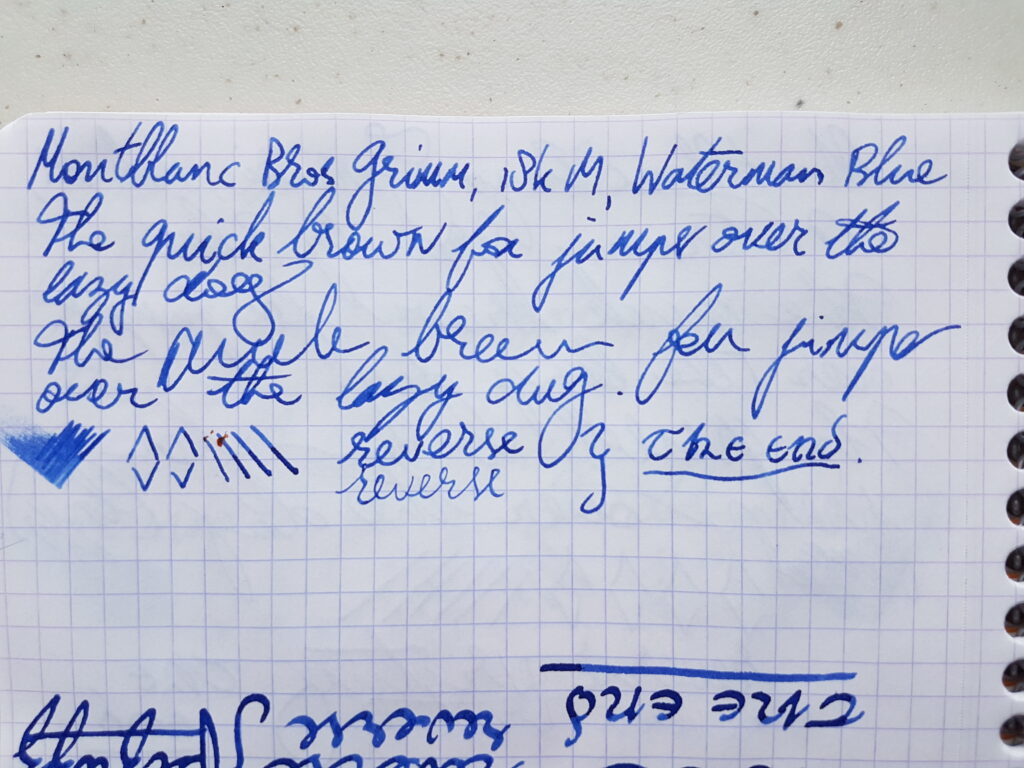 Montblanc Bros Grimm, 18k M, Waterman Blue
The quick brown fox jumps over the
lazy dog
The quick brown fox jumps
over the lazy dog.
reverse THE END.
reverse
THE END
reverse